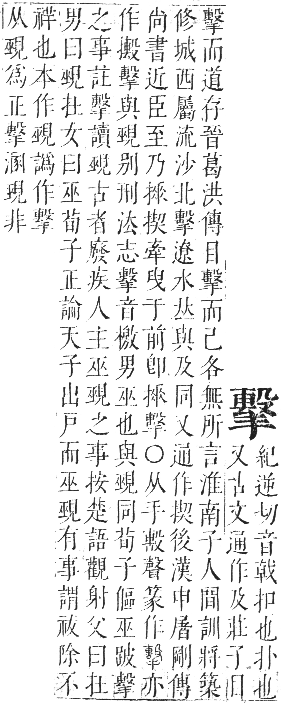 擊
紀逆切音戟扣也扑也
又古文通作及莊子目
擊而道存晉葛洪傳目擊而已各無所言淮南子人間訓將築
修城西屬流沙北擊遼水𠀤與及同又通作揳後漢申屠剛傳
尙書近臣至乃捶揳牽曳于前卽捶擊〇从手毄聲篆作擊亦
作搬擊與覡别刑法志擊音檄男巫也與覡同荀子傴巫跛擊
之事註擊讀覡古者廢疾人主巫覡之事按楚語觀射父曰在
男曰覡在女曰巫荀子正論天子出戸而巫覡有事謂祓除不
祥也本作覡譌作擊
从覡爲正擊溷覡非